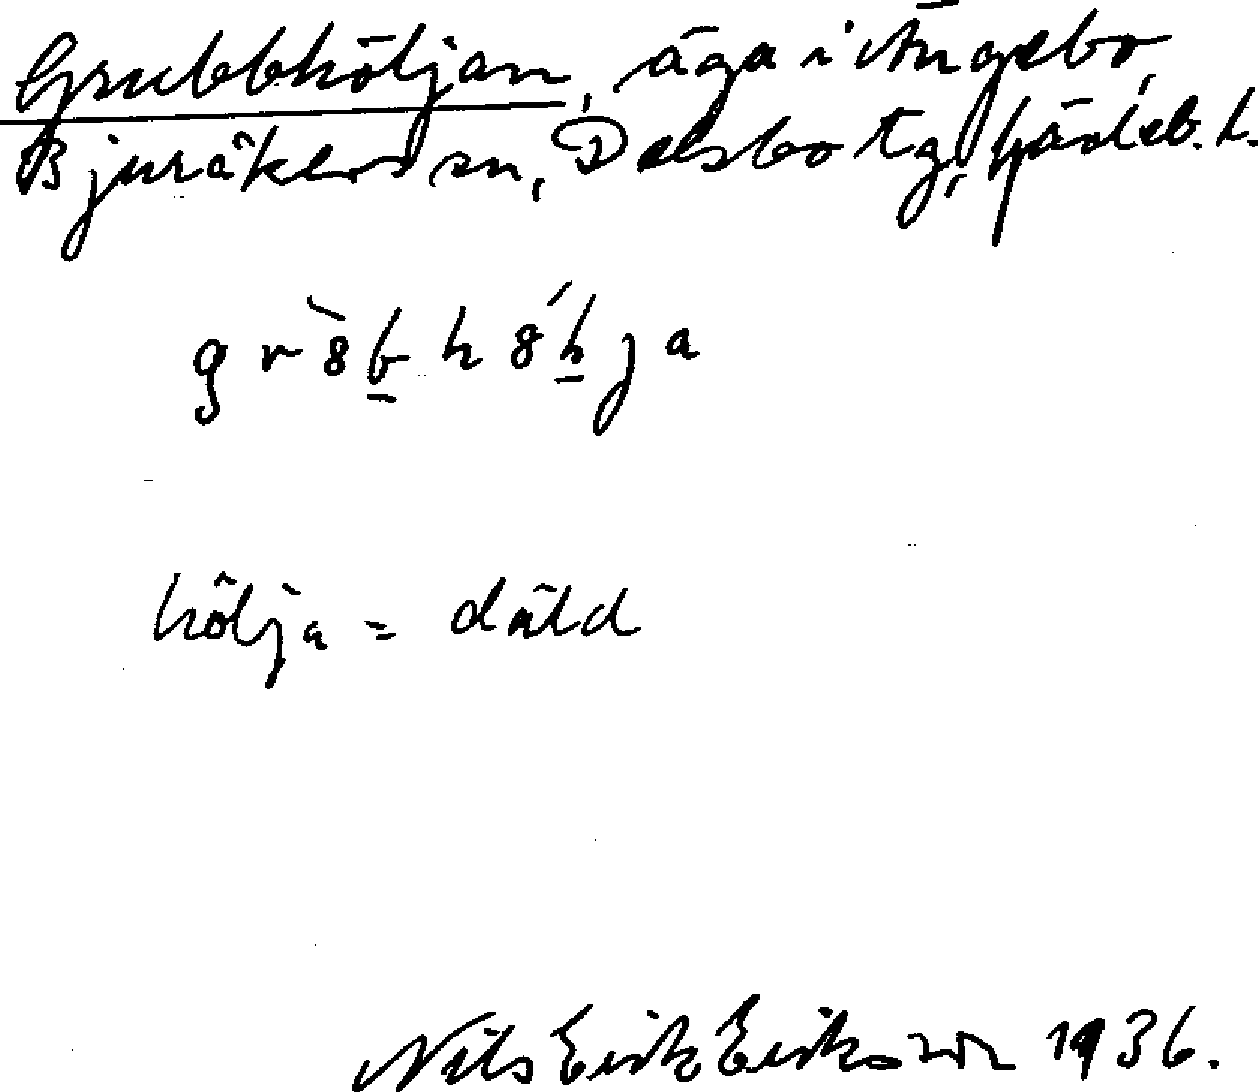 Grubbhöljan, äga i Ängebo,
Bjuråkers sn, Delsbo tg, Gävleb. l.
hölja = däld
Nils Erik Eriksson 1936.